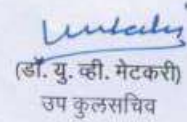 (डॉ. यु. व्ही. मेटकरी)
उप कुलसचिव